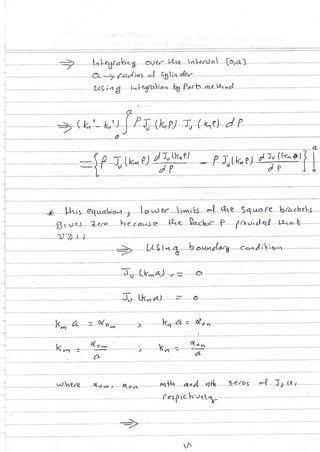 ⇒ Integrating over the interval [0,a]
a → radius of cylinder
using integration by Parts method
⇒ (k_n² - k_m²) ∫₀ᵃ ρ J_υ (k_mρ) J_υ (k_nρ) dρ
= { ρ J_υ (k_mρ) d J_υ (k_nρ) / dρ - ρ J_υ (k_nρ) d J_υ (k_mρ) / dρ } |₀ᵃ
* this equation, lower limits of the square brackets
gives zero because the factor ρ provided that
υ≥1;
⇒ using boundary condition
J_υ (k_m a) = 0
J_υ (k_n a) = 0
k_m a = α_υm ; k_n a = α_υn
k_m = α_υm / a ; k_n = α_υn / a
where α_υm, α_υn mth and nth zeros of J_υ
respictively
⇒